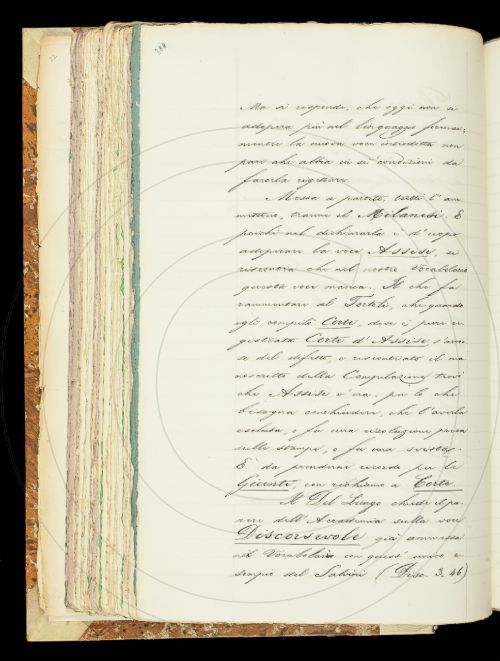 288
Ma si risponde, che oggi non si
adopera più nel linguaggio forense;
mentre la nuova voce introdotta non
pare che abbia in sè condizioni da
farla rigettare.
Messa a partito, tutti l'am
mettono, tranne il Milanesi. E
poichè nel dichiararla è d'uopo
adoperare la voce Assise, si
riscontra che nel nostro Vocabolario
questa voce manca. Il che fa
rammentare al Tortoli, che quando
egli compilò Corte, dove è pure re
gistrata Corte d'Assise, s'accor
se del difetto, e riscontrato il ma
noscritto della Compilazione trovò
che Assise v'era, per lo che
bisogna conchiudere, che l'averla
esclusa, o fu una risoluzione presa
sulle stampe, o fu una svista.
E da prendersi ricordo per le
Giunte, con richiamo a Corte.
Il Del Lungo chiede il pa
rere dell'Accademia sulla voce
Discorsevole, già ammessa
nel Vocabolario con questo unico e
sempio del Salvini (Disc. 3. 46)